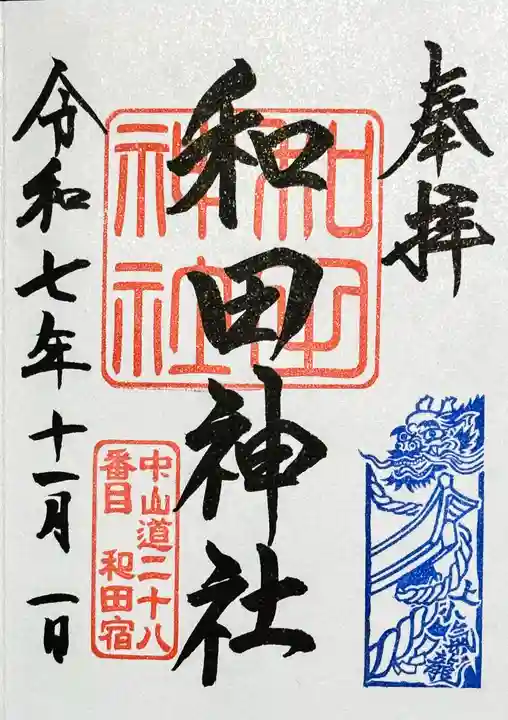 奉拝
和田神社
和田神社
令和七年十一月一日
中山道二十八
番目 和田宿